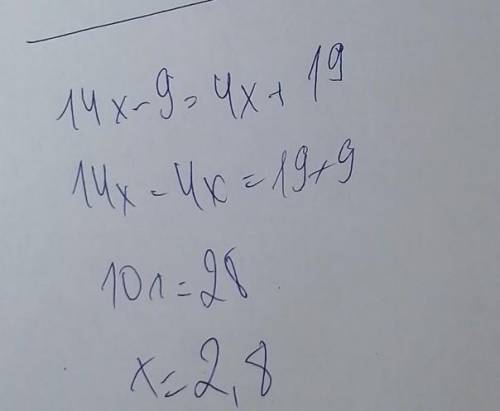 14x-9=4x+19
14x-4x=19+9
10x=28
x=2,8